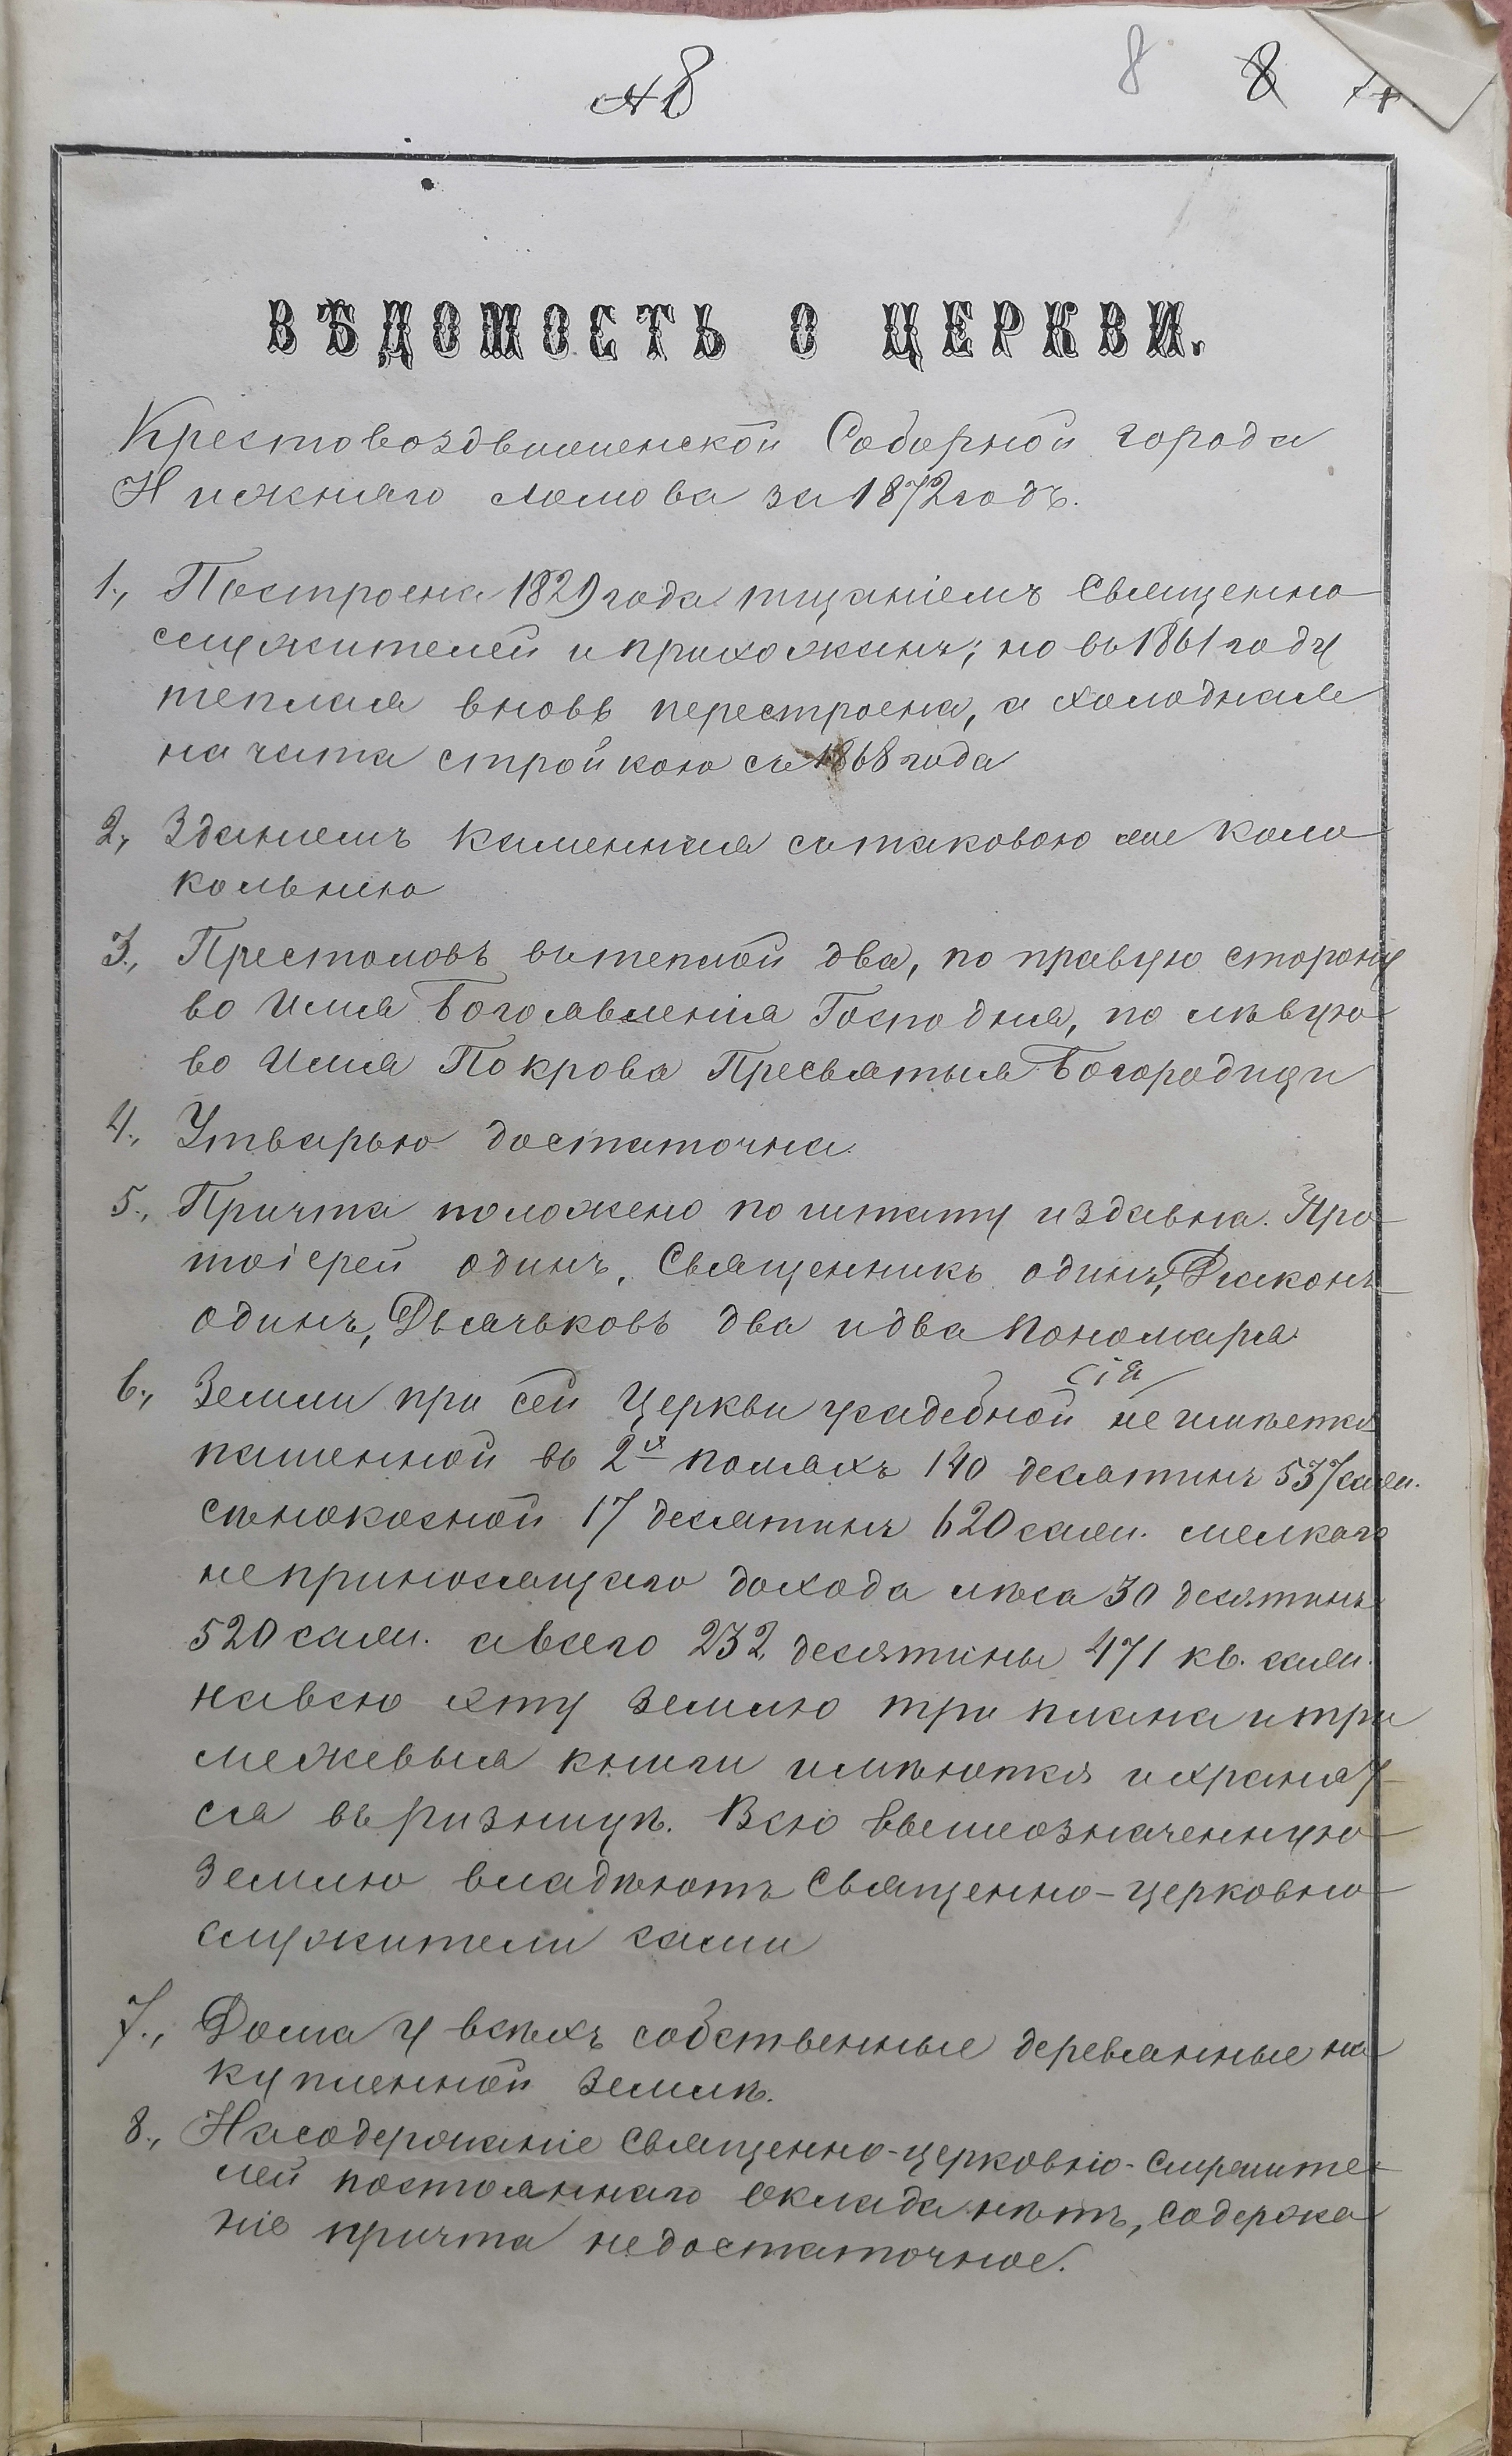 № 8
8 8
ВѢДОМОСТЬ О ЦЕРКВИ.
Крестовоздвиженской Соборной города
Нижняго Ломова за 1872 годъ.
1., Построена 1829 года тщаніемъ Священно
служителей и прихожанъ; но въ 1861 году
теплая вновь перестроена, а холодная
начата стройкою съ 1868 года
2., Зданіемъ каменная съ таковою же коло
кольнею
3., Престоловъ въ теплой два, по правую сторону
во Имя Богоявленія Господня, по лѣвую
во Имя Покрова Пресвятыя Богородицы
4., Утварью достаточна.
5., Причта положено по штату издавна. Про
тоіерей одинъ, Священникъ одинъ, Діаконъ
одинъ, Дьячьковъ два и два Пономаря
6., Земли при сей Церкви усадебной не имѣется
пашенной въ 2х поляхъ 140 десятинъ 537 саж.
сѣнокосной 17 десятинъ 620 саж. мелкаго
неприносящаго дохода лѣса 30 десятинъ
520 саж. а всего 232 десятины 471 кв. саж.
на всю эту землю три плана и три
межевыя книги имѣются и хранят
ся въ ризницѣ. Всю вышеозначенную
землю владѣютъ Священно-церковно
служители сами
7., Дома у всѣхъ собственные деревянные на
купленной землѣ.
8., На содержаніе Священно-церковно-служите
лей постояннаго оклада нѣтъ, содержа
ніе причта недостаточное.